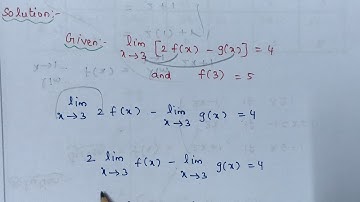 Solution:-
Given: lim x→3 [2f(x) - g(x)] = 4
and f(3) = 5
lim x→3 2f(x) - lim x→3 g(x) = 4
2 lim x→3 f(x) - lim x→3 g(x) = 4